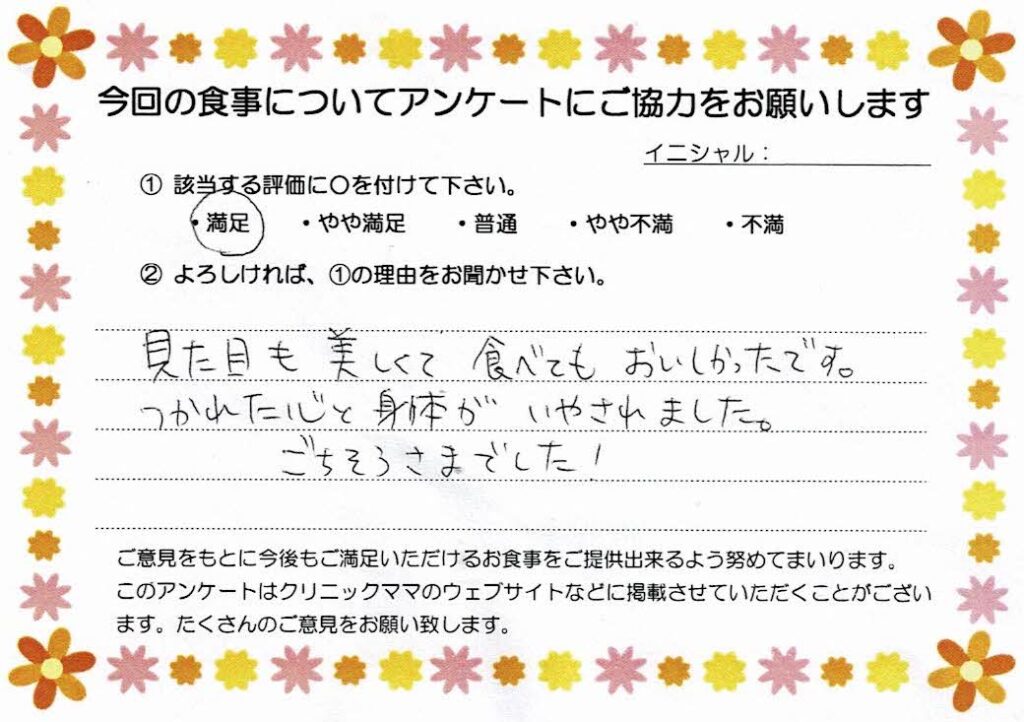 今回の食事についてアンケートにご協力をお願いします
イニシャル：
① 該当する評価に〇を付けて下さい。
・満足 ・やや満足 ・普通 ・やや不満 ・不満
② よろしければ、①の理由をお聞かせ下さい。
見た目も 美しくて 食べても おいしかったです。
つかれた心と 身体が いやされました。
ごちそうさまでした！
ご意見をもとに今後もご満足いただけるお食事をご提供出来るよう努めてまいります。
このアンケートはクリニックママのウェブサイトなどに掲載させていただくことがござい
ます。たくさんのご意見をお願い致します。